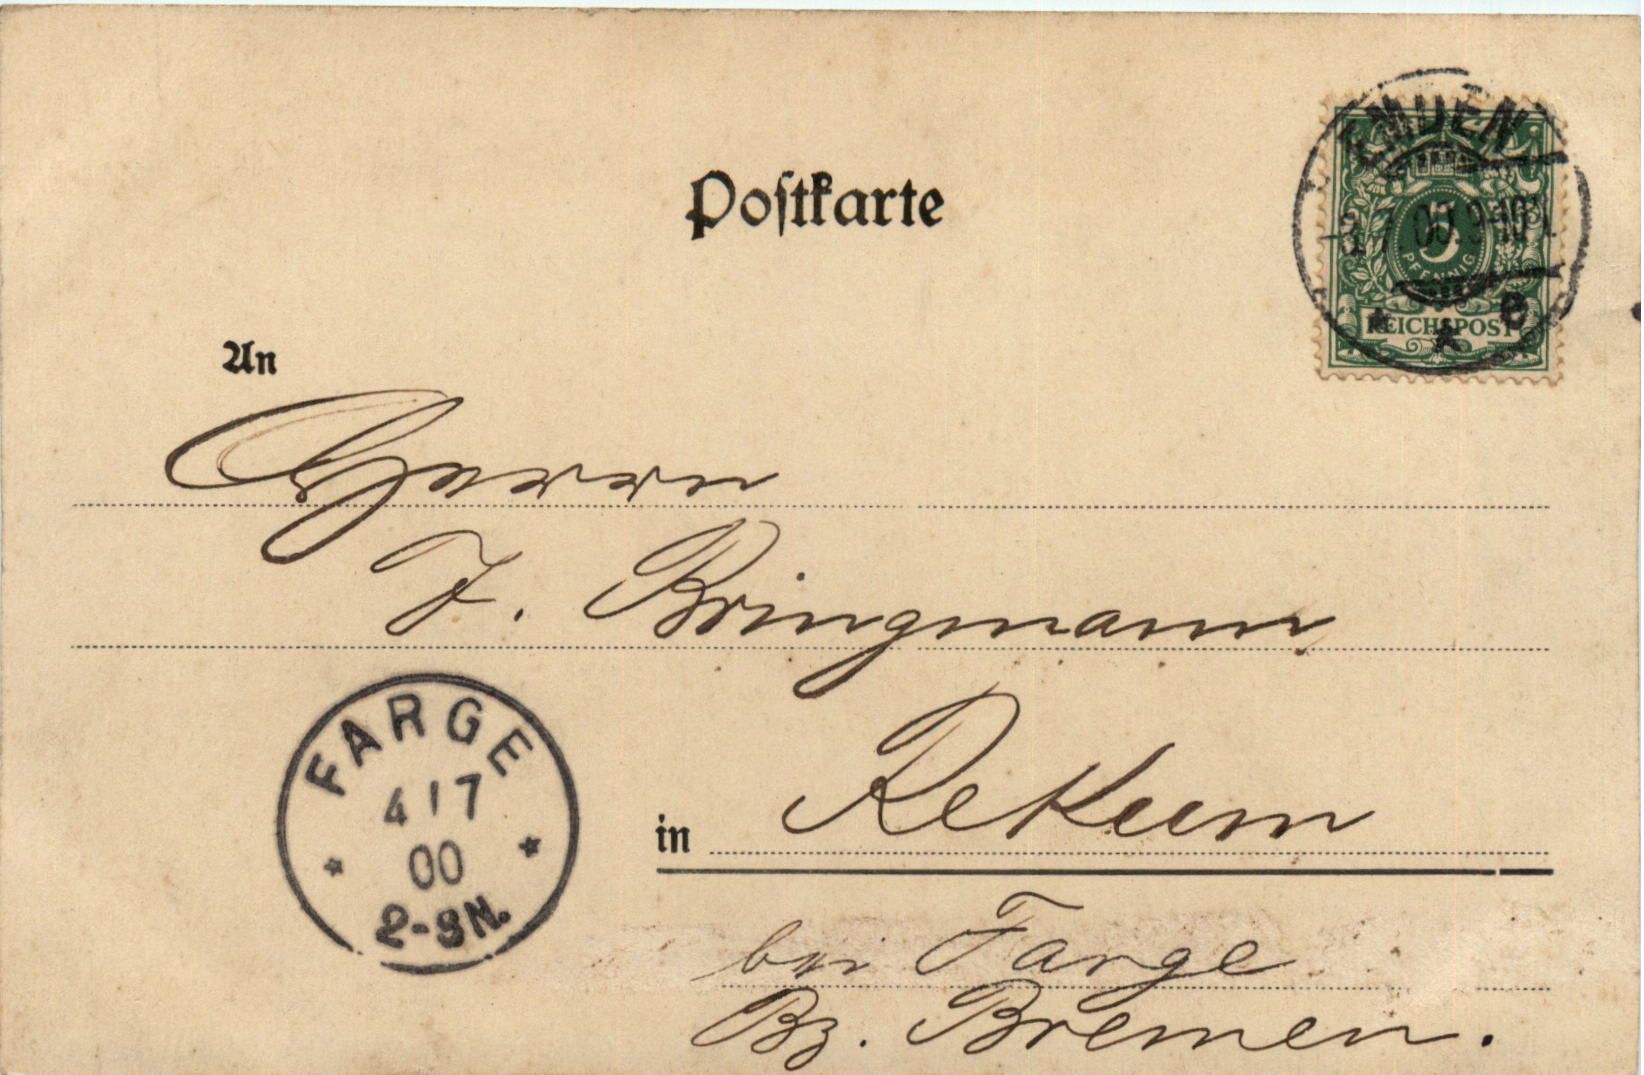 Postkarte
EMDEN
3.7.00.9-10V.
* * e
5
PFENNIG
REICHSPOST
An
Herrn
J. Bringmann
FARGE
4 7
00
2-3N.
in Rekum
bei Farge
Bz. Bremen.